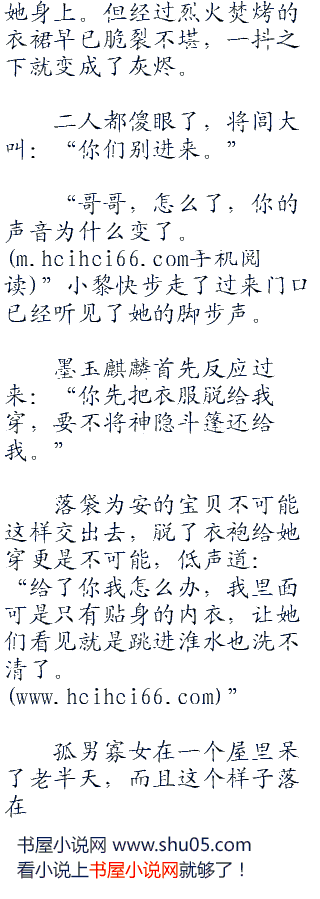 她身上。但经过烈火焚烤的
衣裙早已脆裂不堪，一抖之
下就变成了灰烬。
二人都傻眼了，将闾大
叫：“你们别进来。”
“哥哥，怎么了，你的
声音为什么变了。
(m.hcihci66.com手机阅
读)”小黎快步走了过来门口
已经听见了她的脚步声。
墨玉麒麟首先反应过
来：“你先把衣服脱给我
穿，要不将神隐斗篷还给
我。”
落袋为安的宝贝不可能
这样交出去，脱了衣袍给她
穿更是不可能，低声道：
“给了你我怎么办，我里面
可是只有贴身的内衣，让她
们看见就是跳进淮水也洗不
清了。
(www.hcihci66.com)”
孤男寡女在一个屋里呆
了老半天，而且这个样子落
在
书屋小说网 www.shu05.com
看小说上书屋小说网就够了！